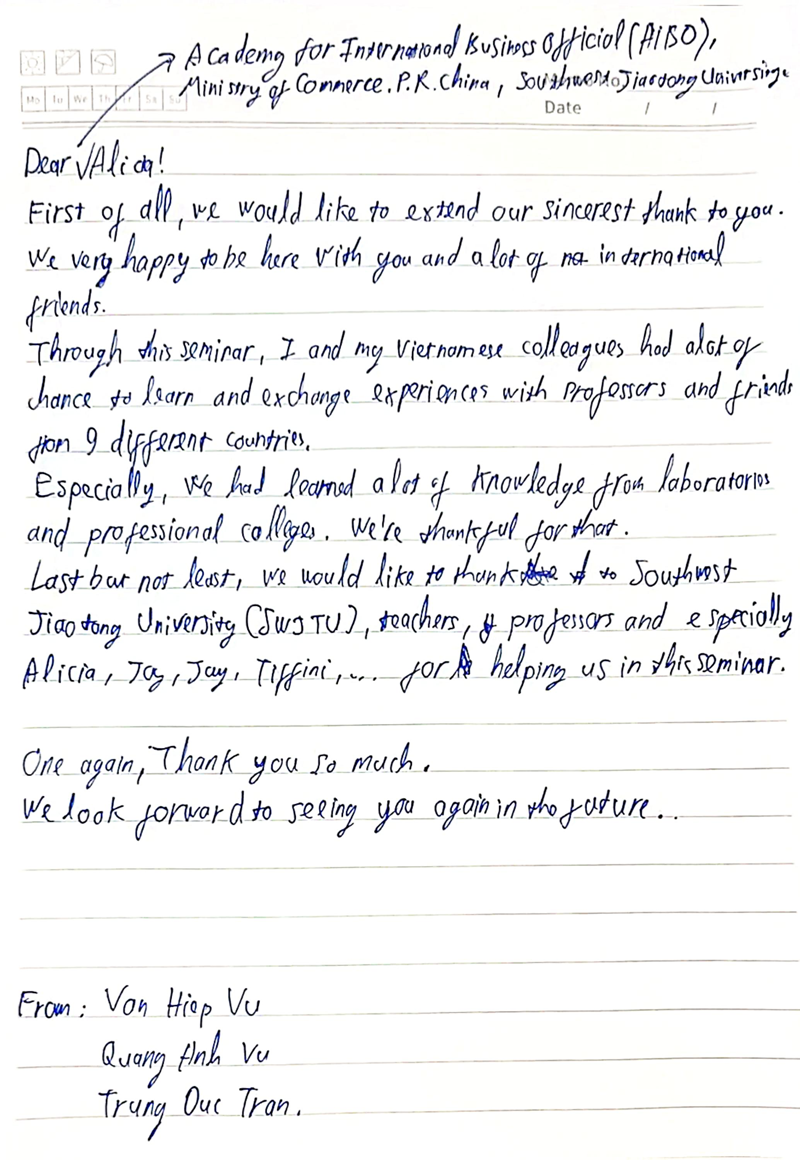 Academy for International Business Official (AIBO),
Ministry of Commerce. P.R. China, Southwest Jiaotong University
Mo Tu We Th Fr Sa Su
Date / /
Dear √Alicia!
First of all, we would like to extend our sincerest thank to you.
We very happy to be here with you and a lot of international
friends.
Through this seminar, I and my Vietnamese colleagues had alot of
chance to learn and exchange experiences with professors and friends
from 9 different countries.
Especially, we had learned a lot of knowledge from laboratories
and professional colleges. We're thankful for that.
Last but not least, we would like to thank to Southwest
Jiaotong University (SWJTU), teachers, professors and especially
Alicia, Joy, Jay, Tiffini,... for helping us in this seminar.
One again, Thank you so much.
We look forward to seeing you again in the future...
From: Van Hiep Vu
Quang Anh Vu
Trung Duc Tran.